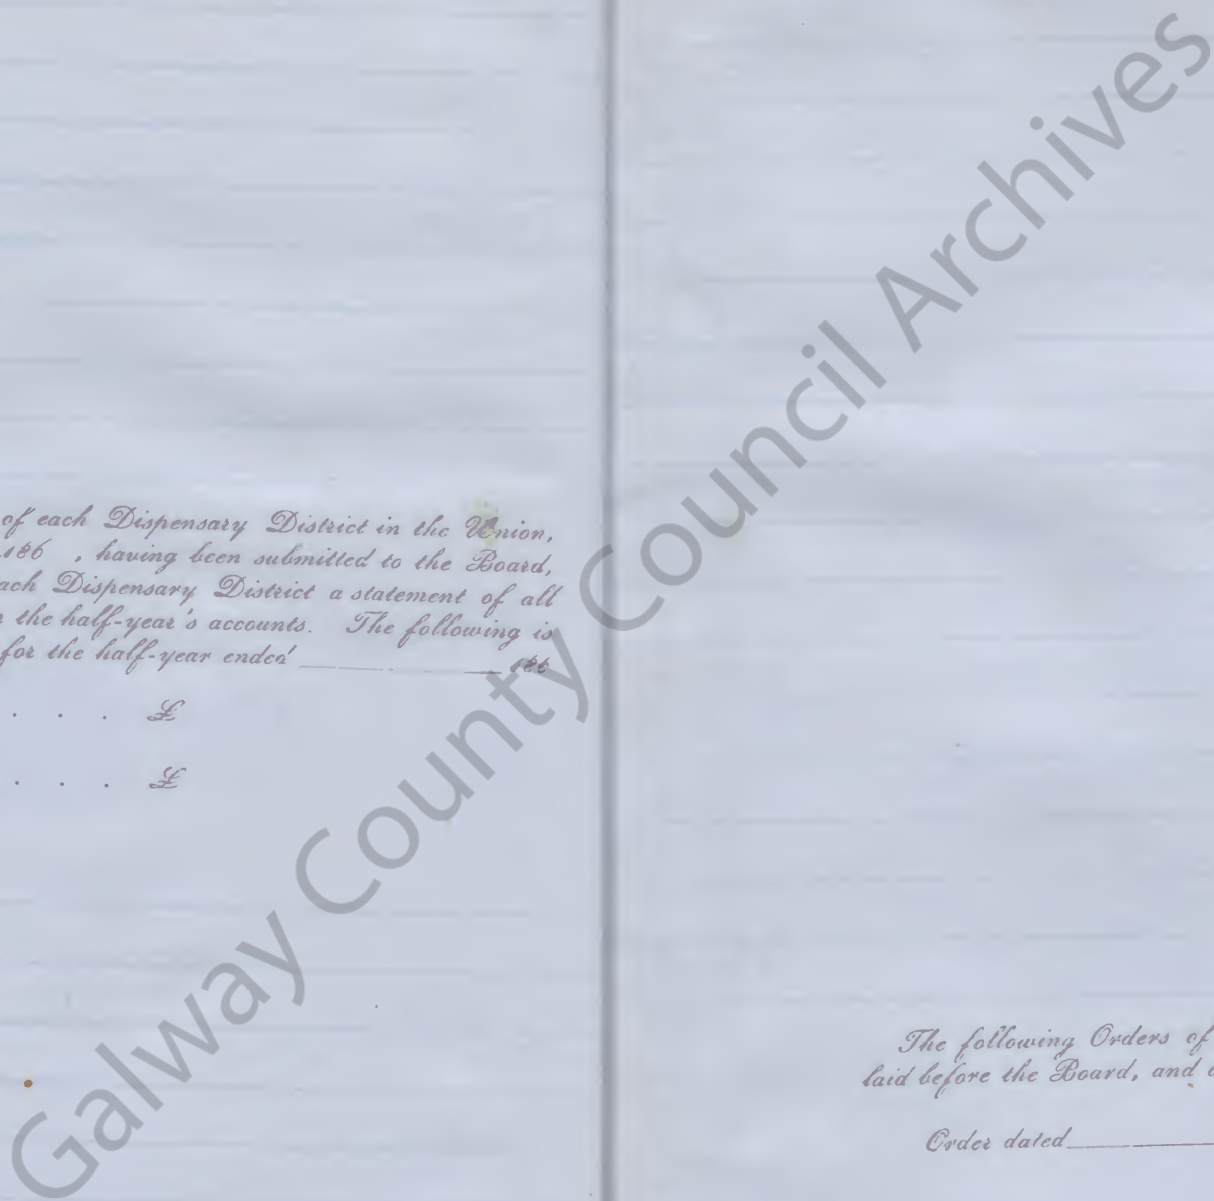 of each Dispensary District in the Union,
186 , having been submitted to the Board,
ach Dispensary District a statement of all
the half-year's accounts. The following is
for the half-year ended __________ 186
. . . £
. . . £
The following Orders of
laid before the Board, and
Order dated__________
Galway County Council Archives